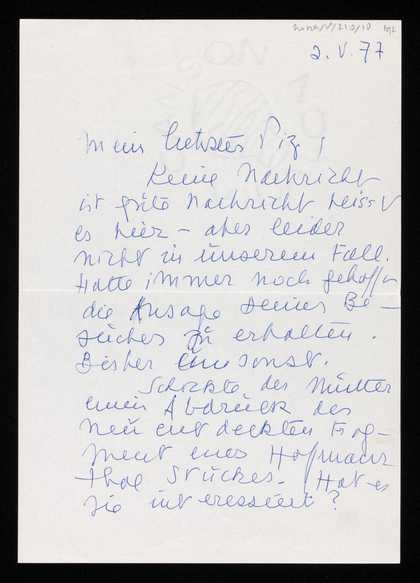 2. V. 77
Mein liebster Piz!
Keine Nachricht
ist gute Nachricht heisst
es hier – aber leider
nicht in unserem Fall.
Hatte immer noch gehofft
die Ansage Deines Be-
suches zu erhalten.
Bisher umsonst.
Schickte der Mutter
einen Abdruck des
neu entdeckten Frag-
ment eines Hofmanns-
thal Stückes. Hat es
sie interessiert?